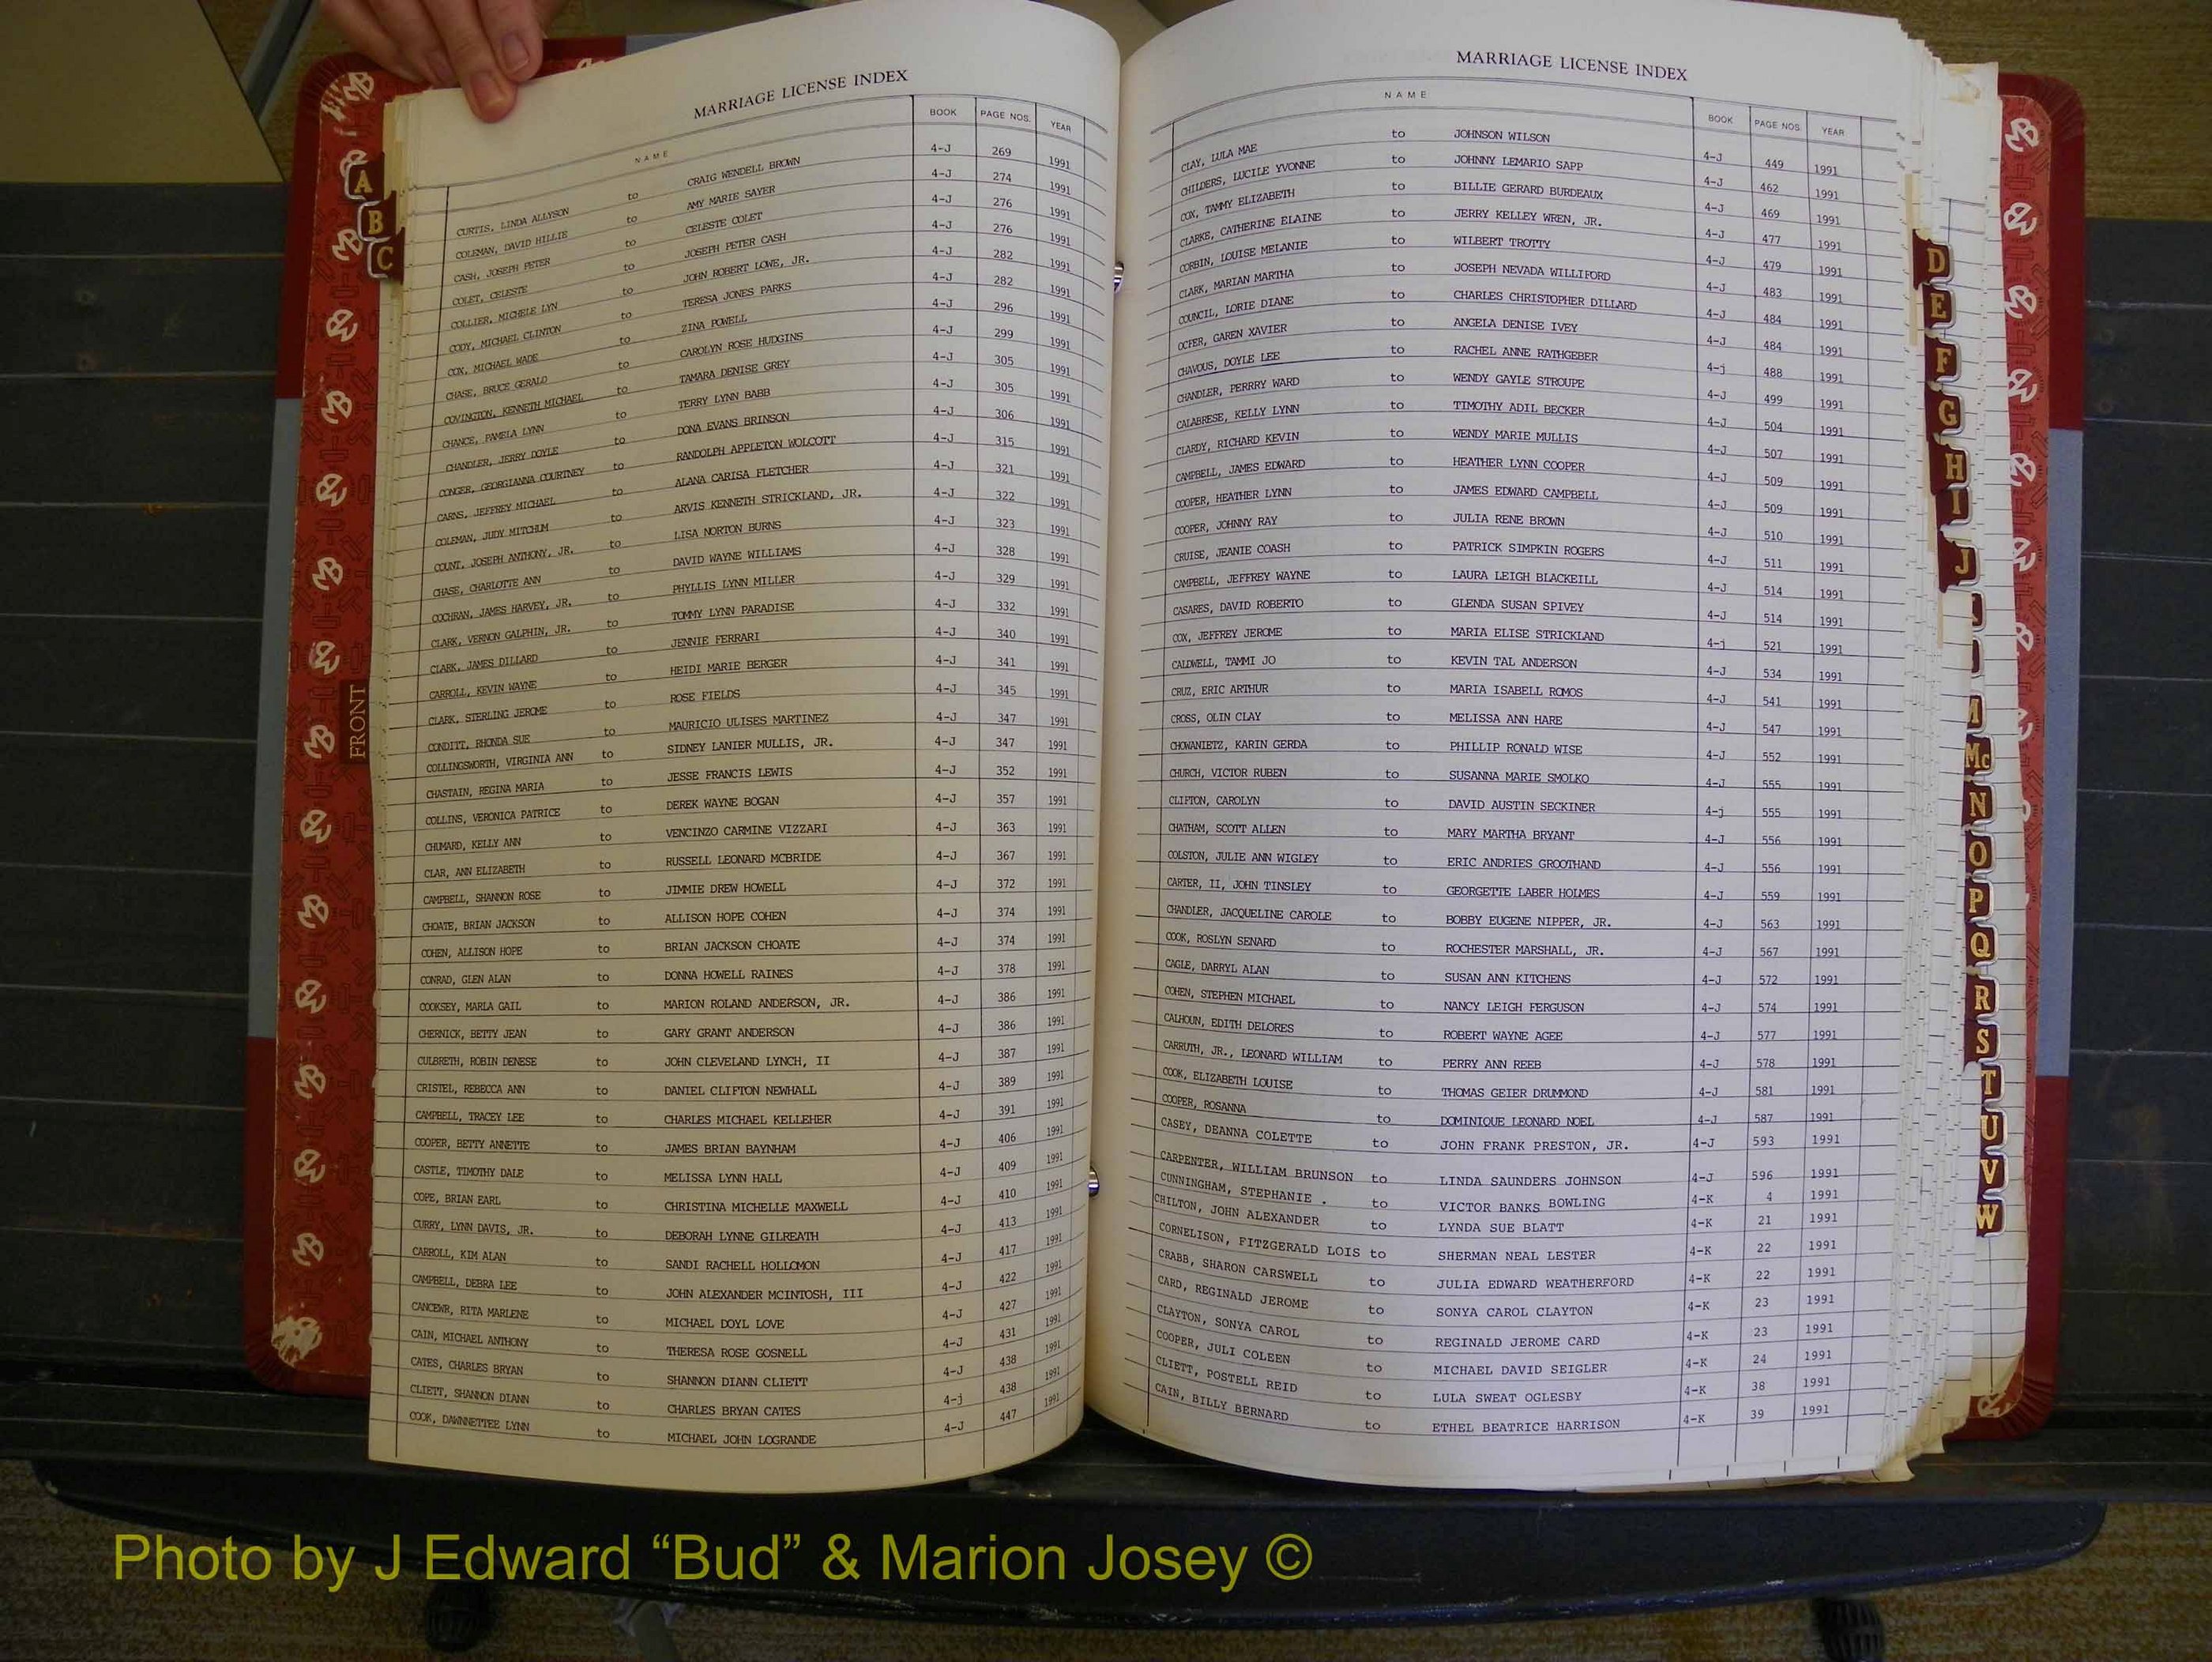 MARRIAGE LICENSE INDEX
NAME BOOK PAGE NOS. YEAR
CURTIS, LINDA ALLYSON to CRAIG WENDELL BROWN 4-J 269 1991
COLEMAN, DAVID HILLIE to AMY MARIE SAYER 4-J 274 1991
CASH, JOSEPH PETER to CELESTE COLET 4-J 276 1991
COLET, CELESTE to JOSEPH PETER CASH 4-J 276 1991
COLLIER, MICHELE LYN to JOHN ROBERT LOWE, JR. 4-J 282 1991
CODY, MICHAEL CLINTON to TERESA JONES PARKS 4-J 282 1991
COX, MICHAEL WADE to ZINA POWELL 4-J 296 1991
CHASE, BRUCE GERALD to CAROLYN ROSE HUDGINS 4-J 299 1991
COVINGTON, KENNETH MICHAEL to TAMARA DENISE GREY 4-J 305 1991
CHANCE, PAMELA LYNN to TERRY LYNN BABB 4-J 305 1991
CHANDLER, JERRY DOYLE to DONA EVANS BRINSON 4-J 306 1991
CONGER, GEORGIANNA COURTNEY to RANDOLPH APPLETON WOLCOTT 4-J 315 1991
CARNS, JEFFREY MICHAEL to ALANA CARISA FLETCHER 4-J 321 1991
COLEMAN, JUDY MITCHUM to ARVIS KENNETH STRICKLAND, JR. 4-J 322 1991
COUNT, JOSEPH ANTHONY, JR. to LISA NORTON BURNS 4-J 323 1991
CHASE, CHARLOTTE ANN to DAVID WAYNE WILLIAMS 4-J 328 1991
COCHRAN, JAMES HARVEY, JR. to PHYLLIS LYNN MILLER 4-J 329 1991
CLARK, VERNON GALPHIN, JR. to TOMMY LYNN PARADISE 4-J 332 1991
CLARK, JAMES DILLARD to JENNIE FERRARI 4-J 340 1991
CARROLL, KEVIN WAYNE to HEIDI MARIE BERGER 4-J 341 1991
CLARK, STERLING JEROME to ROSE FIELDS 4-J 345 1991
CONDITT, RHONDA SUE to MAURICIO ULISES MARTINEZ 4-J 347 1991
COLLINGSWORTH, VIRGINIA ANN to SIDNEY LANIER MULLIS, JR. 4-J 347 1991
CHASTAIN, REGINA MARIA to JESSE FRANCIS LEWIS 4-J 352 1991
COLLINS, VERONICA PATRICE to DEREK WAYNE BOGAN 4-J 357 1991
CHUMARD, KELLY ANN to VENCINZO CARMINE VIZZARI 4-J 363 1991
CLAR, ANN ELIZABETH to RUSSELL LEONARD MCBRIDE 4-J 367 1991
CAMPBELL, SHANNON ROSE to JIMMIE DREW HOWELL 4-J 372 1991
CHOATE, BRIAN JACKSON to ALLISON HOPE COHEN 4-J 374 1991
COHEN, ALLISON HOPE to BRIAN JACKSON CHOATE 4-J 374 1991
CONRAD, GLEN ALAN to DONNA HOWELL RAINES 4-J 378 1991
COOKSEY, MARLA GAIL to MARION ROLAND ANDERSON, JR. 4-J 386 1991
CHERNICK, BETTY JEAN to GARY GRANT ANDERSON 4-J 386 1991
CULBRETH, ROBIN DENESE to JOHN CLEVELAND LYNCH, II 4-J 387 1991
CRISTEL, REBECCA ANN to DANIEL CLIFTON NEWHALL 4-J 389 1991
CAMPBELL, TRACEY LEE to CHARLES MICHAEL KELLEHER 4-J 391 1991
COOPER, BETTY ANNETTE to JAMES BRIAN BAYNHAM 4-J 406 1991
CASTLE, TIMOTHY DALE to MELISSA LYNN HALL 4-J 409 1991
COPE, BRIAN EARL to CHRISTINA MICHELLE MAXWELL 4-J 410 1991
CURRY, LYNN DAVIS, JR. to DEBORAH LYNNE GILREATH 4-J 413 1991
CARROLL, KIM ALAN to SANDI RACHELL HOLLOMON 4-J 417 1991
CAMPBELL, DEBRA LEE to JOHN ALEXANDER MCINTOSH, III 4-J 422 1991
CANCEWR, RITA MARLENE to MICHAEL DOYL LOVE 4-J 427 1991
CAIN, MICHAEL ANTHONY to THERESA ROSE GOSNELL 4-J 431 1991
CATES, CHARLES BRYAN to SHANNON DIANN CLIETT 4-J 438 1991
CLIETT, SHANNON DIANN to CHARLES BRYAN CATES 4-j 438 1991
COOK, DAWNNETTEE LYNN to MICHAEL JOHN LOGRANDE 4-J 447 1991
MARRIAGE LICENSE INDEX
NAME BOOK PAGE NOS. YEAR
CLAY, LULA MAE to JOHNSON WILSON 4-J 449 1991
CHILDERS, LUCILE YVONNE to JOHNNY LEMARIO SAPP 4-J 462 1991
COX, TAMMY ELIZABETH to BILLIE GERARD BURDEAUX 4-J 469 1991
CLARKE, CATHERINE ELAINE to JERRY KELLEY WREN, JR. 4-J 477 1991
CORBIN, LOUISE MELANIE to WILBERT TROTTY 4-J 479 1991
CLARK, MARIAN MARTHA to JOSEPH NEVADA WILLIFORD 4-J 483 1991
COUNCIL, LORIE DIANE to CHARLES CHRISTOPHER DILLARD 4-J 484 1991
OCFER, GAREN XAVIER to ANGELA DENISE IVEY 4-J 484 1991
CHAVOUS, DOYLE LEE to RACHEL ANNE RATHGEBER 4-j 488 1991
CHANDLER, PERRRY WARD to WENDY GAYLE STROUPE 4-J 499 1991
CALABRESE, KELLY LYNN to TIMOTHY ADIL BECKER 4-J 504 1991
CLARDY, RICHARD KEVIN to WENDY MARIE MULLIS 4-J 507 1991
CAMPBELL, JAMES EDWARD to HEATHER LYNN COOPER 4-J 509 1991
COOPER, HEATHER LYNN to JAMES EDWARD CAMPBELL 4-J 509 1991
COOPER, JOHNNY RAY to JULIA RENE BROWN 4-J 510 1991
CRUISE, JEANIE COASH to PATRICK SIMPKIN ROGERS 4-J 511 1991
CAMPBELL, JEFFREY WAYNE to LAURA LEIGH BLACKEILL 4-J 514 1991
CASARES, DAVID ROBERTO to GLENDA SUSAN SPIVEY 4-J 514 1991
COX, JEFFREY JEROME to MARIA ELISE STRICKLAND 4-j 521 1991
CALDWELL, TAMMI JO to KEVIN TAL ANDERSON 4-J 534 1991
CRUZ, ERIC ARTHUR to MARIA ISABELL ROMOS 4-J 541 1991
CROSS, OLIN CLAY to MELISSA ANN HARE 4-J 547 1991
CHOWANIETZ, KARIN GERDA to PHILLIP RONALD WISE 4-J 552 1991
CHURCH, VICTOR RUBEN to SUSANNA MARIE SMOLKO 4-J 555 1991
CLIFTON, CAROLYN to DAVID AUSTIN SECKINER 4-j 555 1991
CHATHAM, SCOTT ALLEN to MARY MARTHA BRYANT 4-J 556 1991
COLSTON, JULIE ANN WIGLEY to ERIC ANDRIES GROOTHAND 4-J 556 1991
CARTER, II, JOHN TINSLEY to GEORGETTE LABER HOLMES 4-J 559 1991
CHANDLER, JACQUELINE CAROLE to BOBBY EUGENE NIPPER, JR. 4-J 563 1991
COOK, ROSLYN SENARD to ROCHESTER MARSHALL, JR. 4-J 567 1991
CAGLE, DARRYL ALAN to SUSAN ANN KITCHENS 4-J 572 1991
COHEN, STEPHEN MICHAEL to NANCY LEIGH FERGUSON 4-J 574 1991
CALHOUN, EDITH DELORES to ROBERT WAYNE AGEE 4-J 577 1991
CARRUTH, JR., LEONARD WILLIAM to PERRY ANN REEB 4-J 578 1991
COOK, ELIZABETH LOUISE to THOMAS GEIER DRUMMOND 4-J 581 1991
COOPER, ROSANNA to DOMINIQUE LEONARD NOEL 4-J 587 1991
CASEY, DEANNA COLETTE to JOHN FRANK PRESTON, JR. 4-J 593 1991
CARPENTER, WILLIAM BRUNSON to LINDA SAUNDERS JOHNSON 4-J 596 1991
CUNNINGHAM, STEPHANIE . to VICTOR BANKS BOWLING 4-K 4 1991
CHILTON, JOHN ALEXANDER to LYNDA SUE BLATT 4-K 21 1991
CORNELISON, FITZGERALD LOIS to SHERMAN NEAL LESTER 4-K 22 1991
CRABB, SHARON CARSWELL to JULIA EDWARD WEATHERFORD 4-K 22 1991
CARD, REGINALD JEROME to SONYA CAROL CLAYTON 4-K 23 1991
CLAYTON, SONYA CAROL to REGINALD JEROME CARD 4-K 23 1991
COOPER, JULI COLEEN to MICHAEL DAVID SEIGLER 4-K 24 1991
CLIETT, POSTELL REID to LULA SWEAT OGLESBY 4-K 38 1991
CAIN, BILLY BERNARD to ETHEL BEATRICE HARRISON 4-K 39 1991
A
B
C
FRONT
D
E
F
G
H
I
J
M
Mc
N
O
P
Q
R
S
T
U
V
W
Photo by J Edward “Bud” & Marion Josey ©